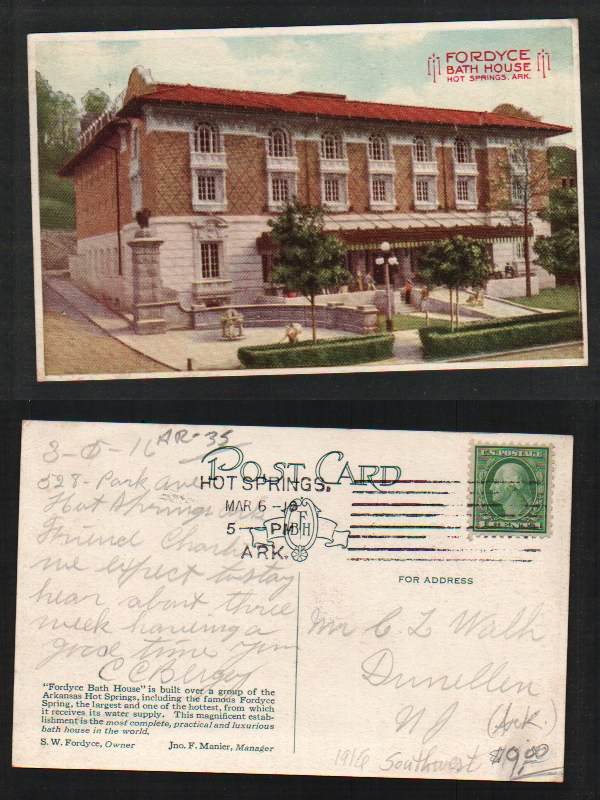 FORDYCE
BATH HOUSE
HOT SPRINGS, ARK.
3-5-16
AR-35
POST CARD
528- Park Ave
Hot Springs Ark
HOT SPRINGS,
MAR 6
5 - PM
ARK.
F
B H
Friend Charlie
we expect to stay
hear about three
week having a
good time
C C Bergey
FOR ADDRESS
Mr C L Walh
Dunellen
NJ
(Ark.)
1916 Southwest $9.00
"Fordyce Bath House" is built over a group of the
Arkansas Hot Springs, including the famous Fordyce
Spring, the largest and one of the hottest, from which
it receives its water supply. This magnificent estab-
lishment is the most complete, practical and luxurious
bath house in the world.
S. W. Fordyce, Owner Jno. F. Manier, Manager